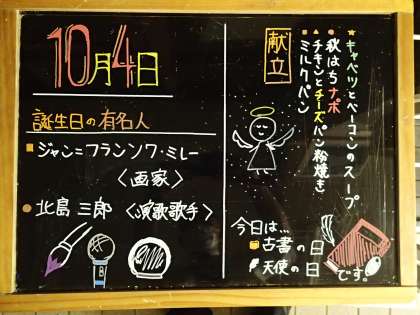 10月4日
誕生日の有名人
ジャン=フランソワ・ミレー
〈画家〉
北島 三郎 〈演歌歌手〉
献立
キャベツとベーコンのスープ
秋はちナポ
チキンとチーズパン粉焼き
ミルクパン
今日は…
古書の日
天使の日
です。
B